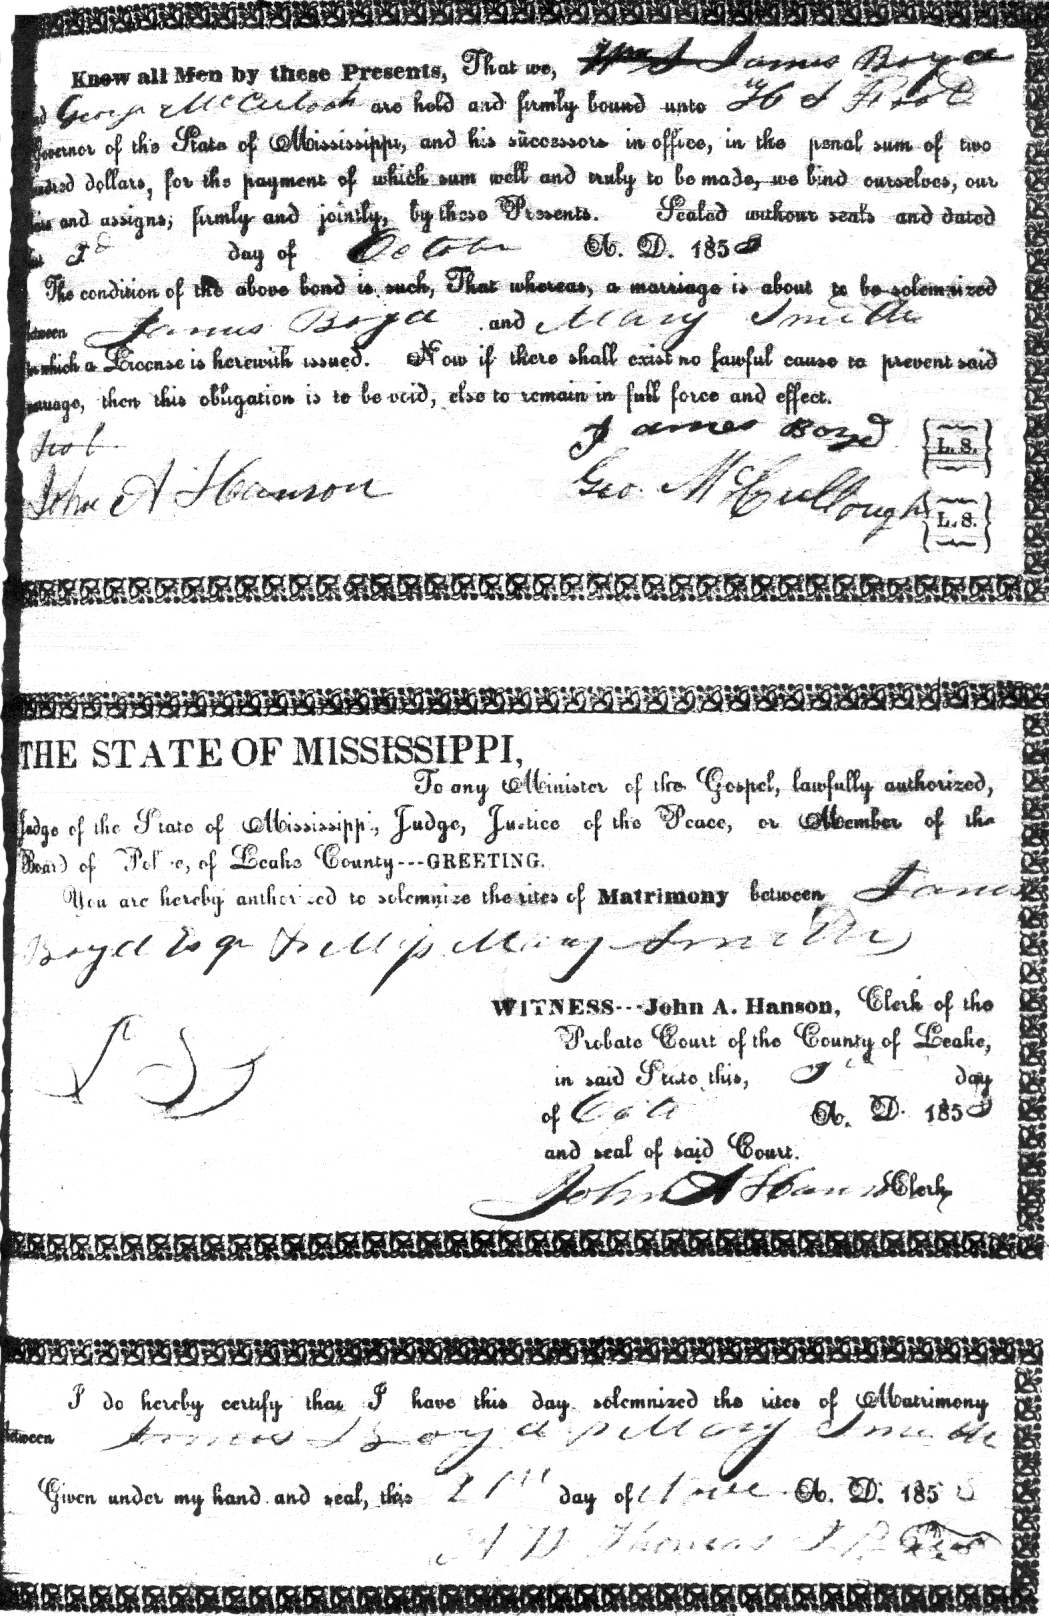 Know all Men by these Presents, That we, James Boyd
George McCulloch are held and firmly bound unto H S Foote
Governor of the State of Mississippi, and his successors in office, in the penal sum of two
hundred dollars, for the payment of which sum well and truly to be made, we bind ourselves, our
and assigns, firmly and jointly, by these Presents. Sealed without seals and dated
day of October A. D. 1853
The condition of the above bond is such, That whereas, a marriage is about to be solemnized
between James Boyd and Mary Smith
for which a License is herewith issued. Now if there shall exist no lawful cause to prevent said
marriage, then this obligation is to be void, else to remain in full force and effect.
James Boyd L. S.
John A Hanson Geo. McCullough L. S.
THE STATE OF MISSISSIPPI,
To any Minister of the Gospel, lawfully authorized,
Judge of the State of Mississippi, Judge, Justice of the Peace, or Member of the
Board of Police, of Leake County---GREETING.
You are hereby authorized to solemnize the rites of Matrimony between James
Boyd Esqr & Miss Mary Smith
WITNESS---John A. Hanson, Clerk of the
Probate Court of the County of Leake,
in said State, this, day
L S of Octo A. D. 1853
and seal of said Court.
John A Hanson Clerk
I do hereby certify that I have this day solemnized the rites of Matrimony
between James Boyd & Mary Smith
Given under my hand and seal, this 21st day of A. D. 185
A D Thomas J P